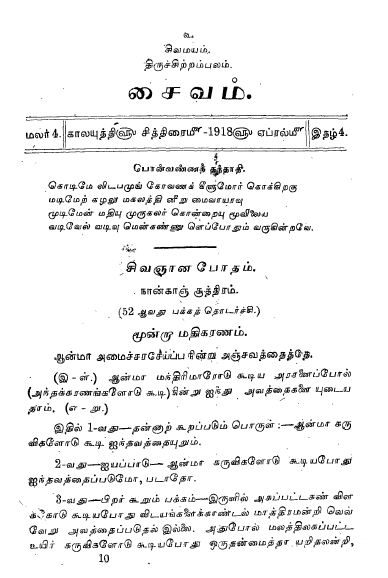 உ
சிவமயம்.
திருச்சிற்றம்பலம்.
சைவம்.
மலர் 4. காலயுத்தி௵ சித்திரை௴-1918௵ ஏப்ரல்௴ இதழ் 4.
பொன்வண்ணத் தந்தாதி.
கொடிமே லிடபமுங் கோவணக் கீளுமோர் கொக்கிறகு
மடிமேற் கழலு மகலத்தி னீறு மைவாயரவு
முடிமேன் மதியு முருகலர் கொன்றையு மூவிலைய
வடிவேல் வடிவு மென்கண்ணு ளெப்போதும் வருகின்றவே.
சிவஞான போதம்.
நான்காஞ் சூத்திரம்.
(52 ஆவது பக்கத் தொடர்ச்சி.)
மூன்று மதிகரணம்.
ஆன்மா அமைச்சரசேய்ப்பநின்று அஞ்சவத்தைத்தே.
(இ - ள்.) ஆன்மா மந்திரிமாரோடு கூடிய அரசனைப்போல்
(அந்தக்கரணங்களோடு கூடி)நின்று ஐந்து அவத்தைகளை யுடைய
தாம். (எ - று.)
இதில் 1-வது—தன்னாற் கூறப்படும் பொருள் :— ஆன்மா கரு
விகளோடு கூடி ஐந்தவத்தையுறும்.
2-வது—ஐயப்பாடு— ஆன்மா கருவிகளோடு கூடியபோது
ஐந்தவத்தைப்படுமோ, படாதோ.
3-வது—பிறர் கூறும் பக்கம்—இருளில் அகப்பட்டகண் விள
க்கோடு கூடியபோது விடயங்களைக்காண்டல் மாத்திரமன்றி வெவ்
வேறு அவத்தைப்படுதல் இல்லை. அதுபோல் மலத்திலகப்பட்ட
உயிர் கருவிகளோடு கூடியபோது ஒருதன்மைத்தா யறிதலன்றி,
10